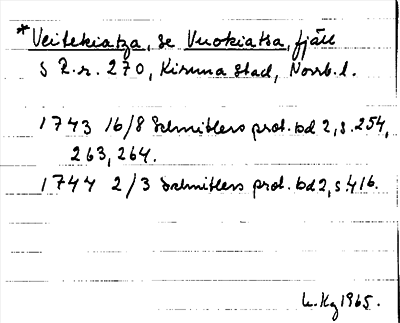 *Veitekiatza, se Vuokiatsa, fjäll
S Z.r. 270, Kiruna stad, Norrb.l.
1743 16/8 Schnitlers prot. bd 2, s. 254,
263, 264.
1744 2/3 Schnitlers prot. bd 2, s 416.
L. Kg 1965.